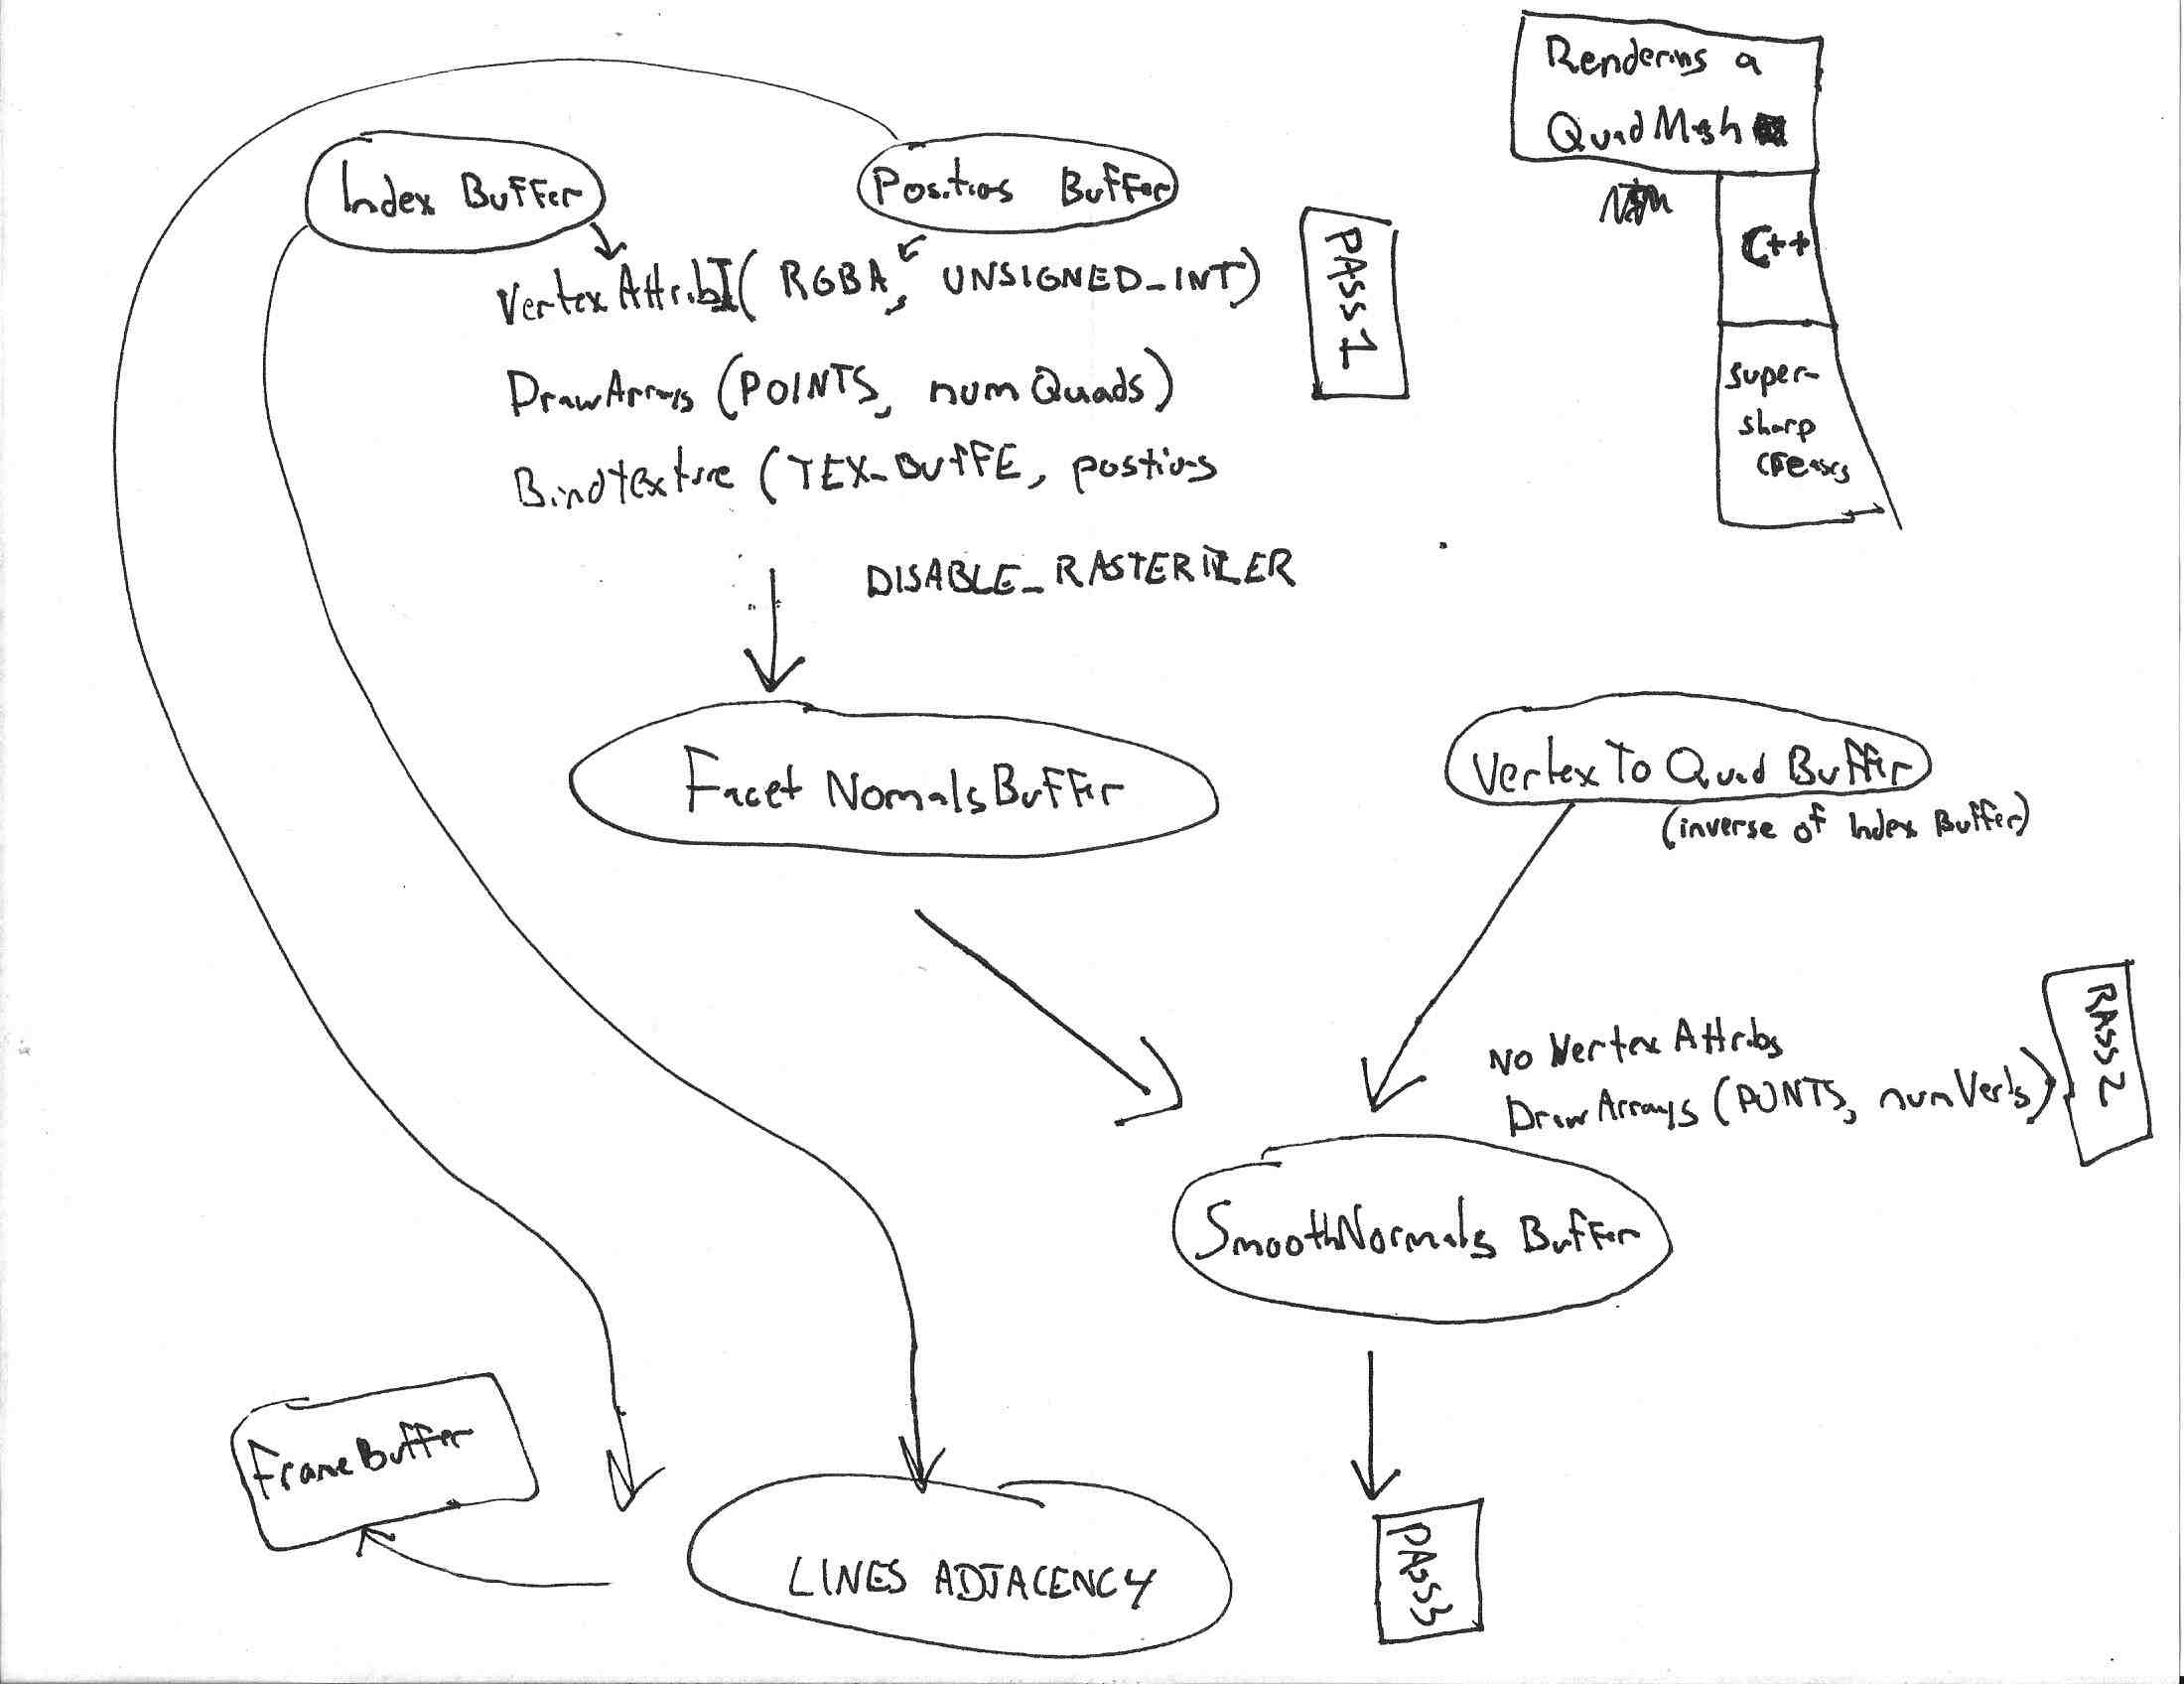 Rendering a
Quad Mesh
C++
super-
sharp
creases
Index Buffer
Positions Buffer
PASS 1
VertexAttribI( RGBA, UNSIGNED_INT)
DrawArrays (POINTS, numQuads)
BindTexture (TEX_BUFFE, postions
DISABLE_RASTERIZER
Facet NomalsBuffer
VertexTo Quad Buffer
(inverse of Index Buffer)
PASS 2
No Vertex Attribs
DrawArrays (POINTS, numVerts)
SmoothNormals Buffer
FrameBuffer
LINES ADJACENCY
PASS 3